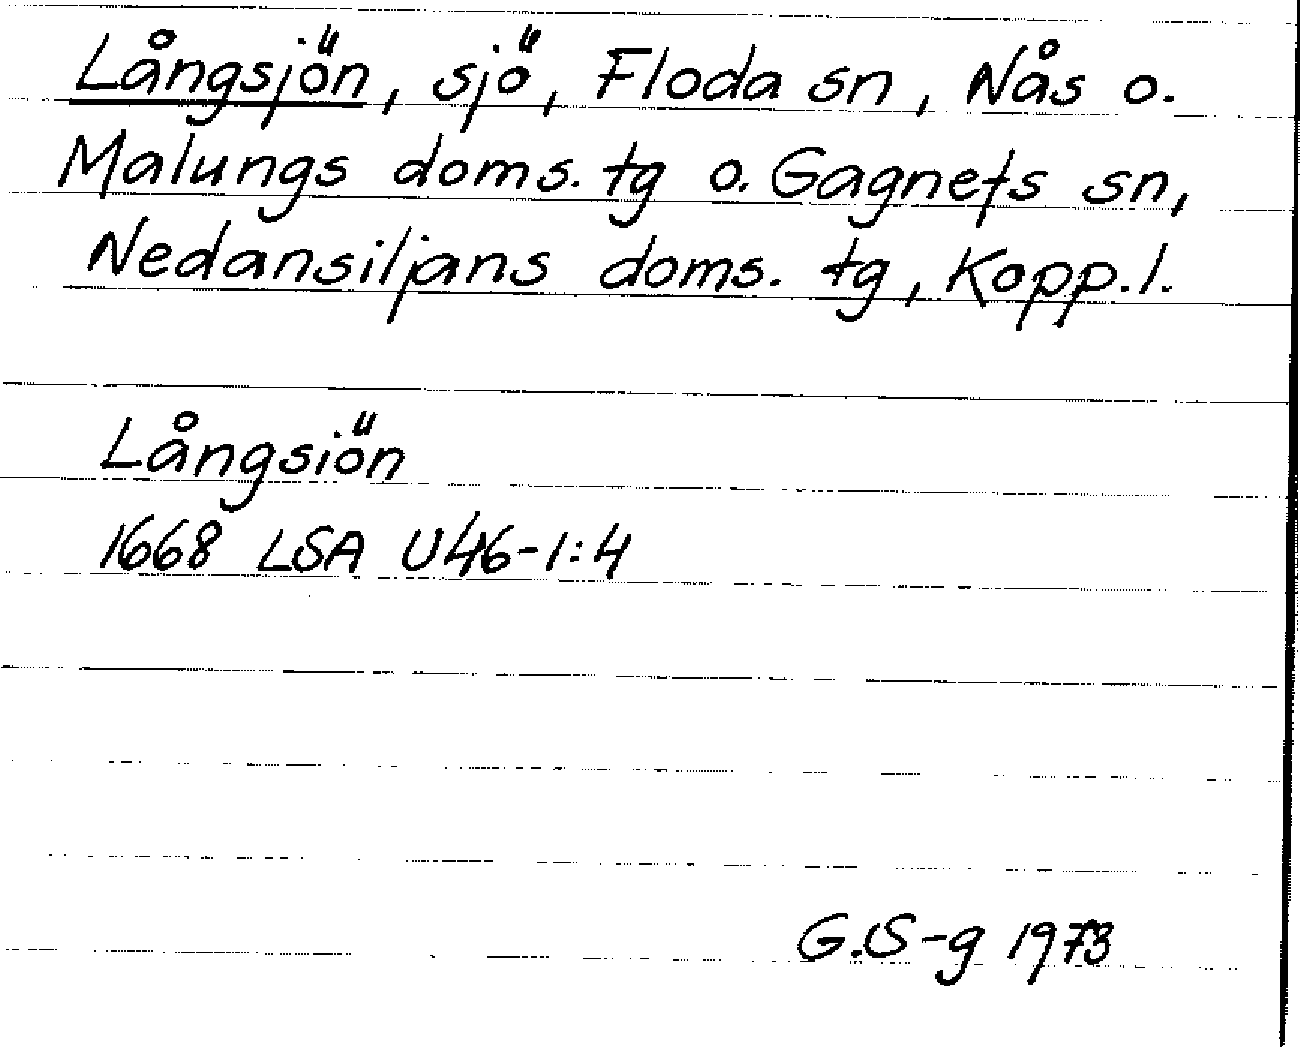 Långsjön, sjö, Floda sn, Nås o.
Malungs doms. tg o. Gagnefs sn,
Nedansiljans doms. tg, Kopp. l.
Långsiön
1668 LSA U46-1:4
G.S-g 1973